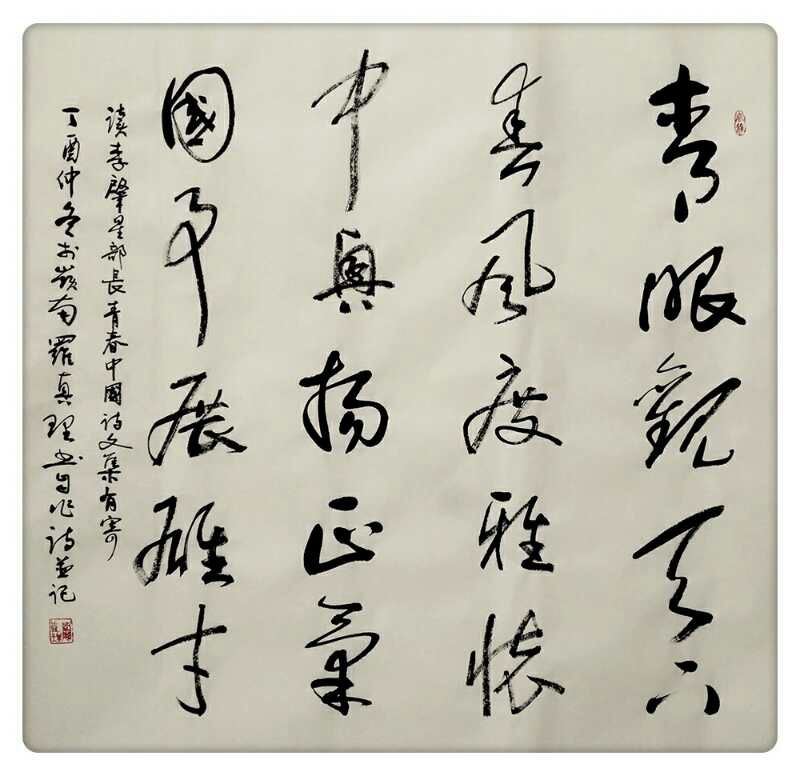 青眼觀天下
春風度雅懷
中興揚正氣
國事展雄才
讀李肇星部長青春中國詩文集有寄
丁酉仲冬於嶺南羅真理書自作詩並記